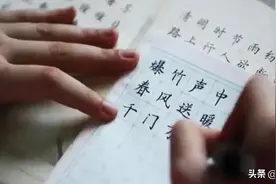 清明时节雨纷
路上行人欲断
爆竹声中
春风送暖
千门
头条 @